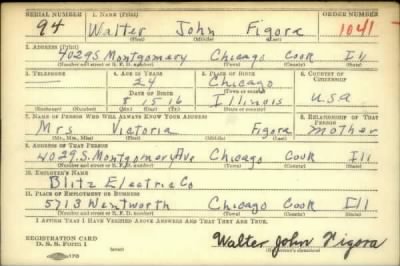 SERIAL NUMBER 1. NAME (Print) ORDER NUMBER
94 Walter John Figora 1041
(First) (Middle) (Last)
2. ADDRESS (Print)
4029 S Montgomery Chicago Cook Ill
(Number and street or R. F. D. number) (Town) (County) (State)
3. TELEPHONE 4. AGE IN YEARS 5. PLACE OF BIRTH 6. COUNTRY OF CITIZENSHIP
24 Chicago
(Town or county)
DATE OF BIRTH
8 15 16 Illinois U.S.A
(Exchange) (Number) (Mo.) (Day) (Yr.) (State or country)
7. NAME OF PERSON WHO WILL ALWAYS KNOW YOUR ADDRESS 8. RELATIONSHIP OF THAT PERSON
Mrs Victoria Figora Mother
(Mr., Mrs., Miss) (First) (Middle) (Last)
9. ADDRESS OF THAT PERSON
4029.S. Montgomery Ave Chicago Cook Ill
(Number and street or R. F. D. number) (Town) (County) (State)
10. EMPLOYER'S NAME
Blitz Electric Co
11. PLACE OF EMPLOYMENT OR BUSINESS
5713 Wentworth Chicago Cook Ill
(Number and street or R. F. D. number) (Town) (County) (State)
I AFFIRM THAT I HAVE VERIFIED ABOVE ANSWERS AND THAT THEY ARE TRUE.
REGISTRATION CARD
D. S. S. Form 1 (over) Walter John Figora
(Registrant's signature)